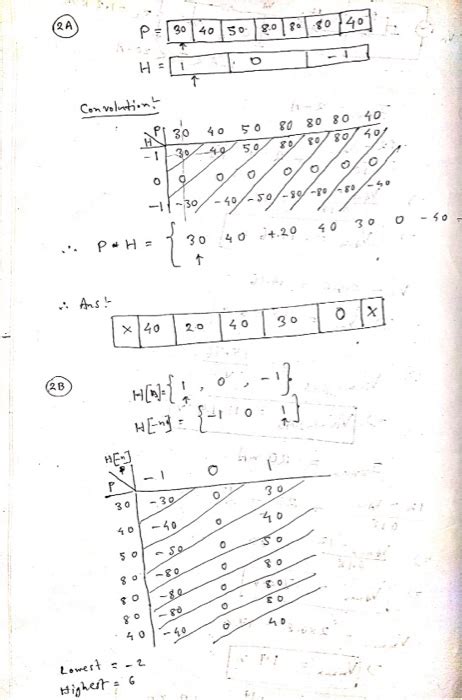 2A
P = 30 40 50 80 80 80 40
↑
H = 1 0 -1
↑
Convolution:-
P 30 40 50 80 80 80 40
H
-1 30 -40 50 80 80 80 40
0 0 0 0 0 0 0 0
-1 -30 -40 -50 -80 -80 -80 -40
∴ P * H = { 30 40 +20 40 30 0 -40 -
↑
∴ Ans:-
X 40 20 40 30 0 X
2B
H[n] = { 1 , 0 , -1 }
↑
H[-n] = { -1 0 1 }
↑
H[-n]
P -1 0 1
30 -30 0 30
40 -40 0 40
50 -50 0 50
80 -80 0 80
80 -80 0 80
80 -80 0 80
40 -40 0 40
Lowest = -2
Highest = 6